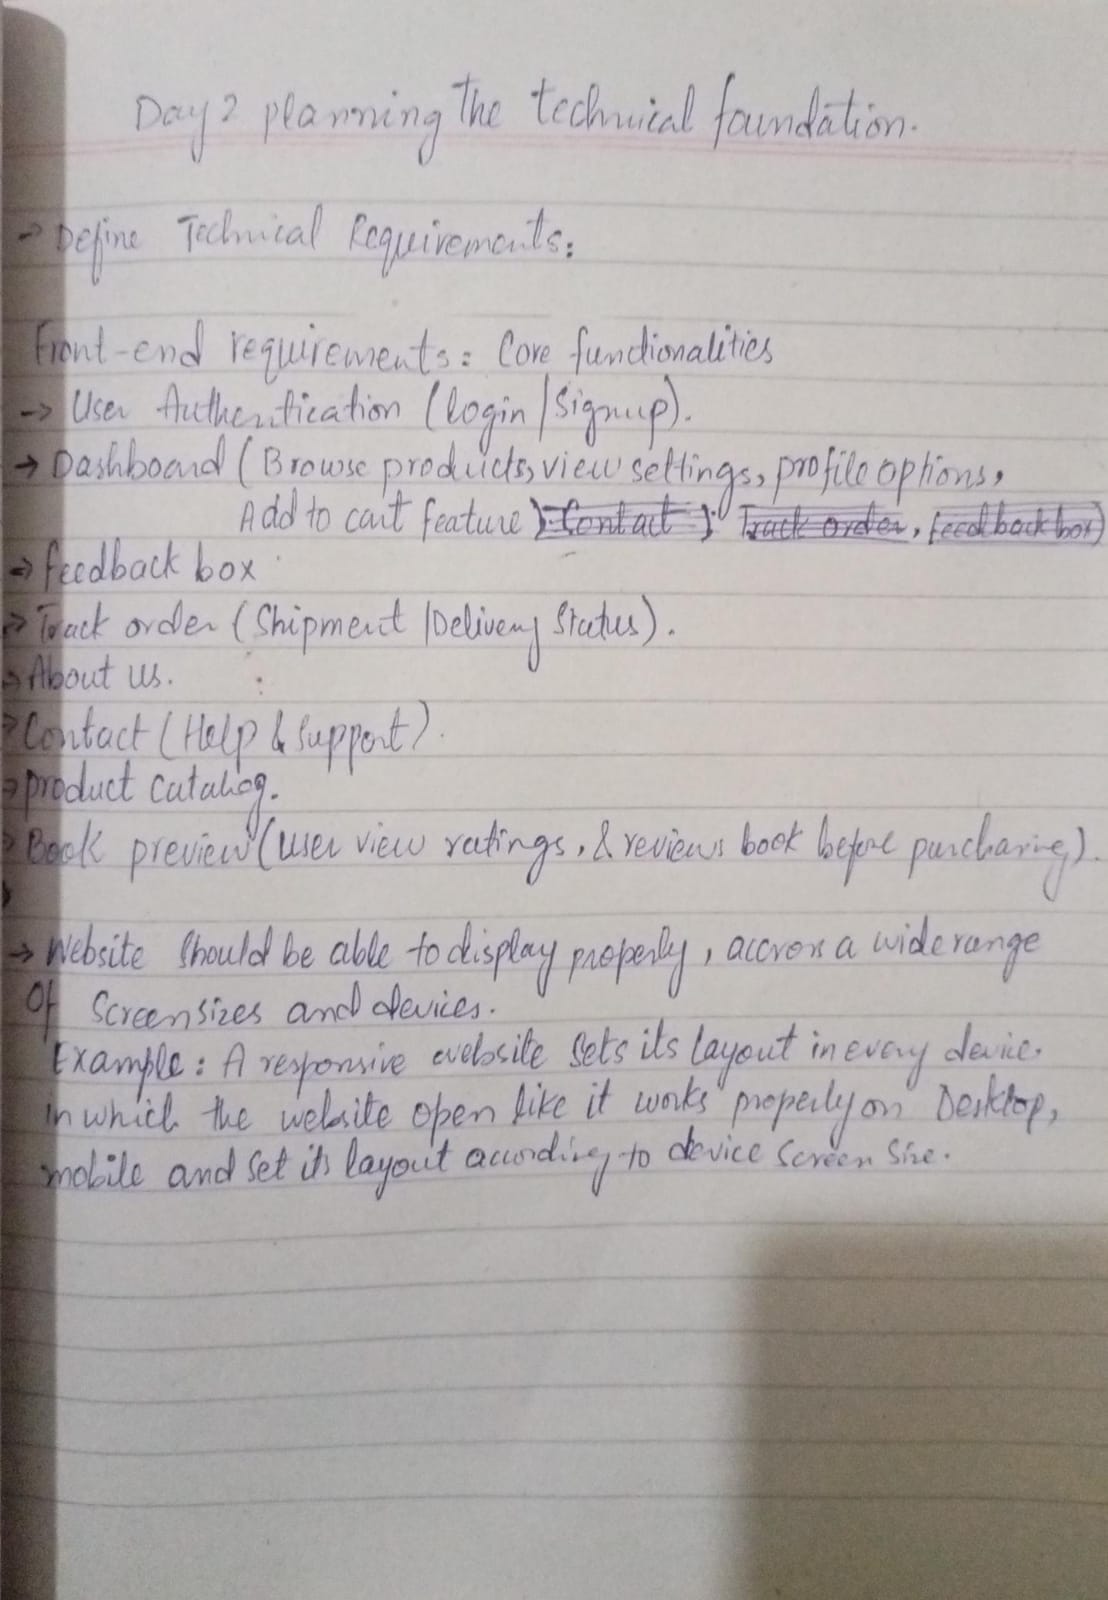 Day 2 planning The technical foundation.
→ Define Technical Requirements:
Front-end requirements: Core functionalities
→ User Authentication (login/Signup).
→ Dashboard (Browse products, view settings, profile options,
Add to cart feature). Contact). Track order, feedback box)
→ feedback box
→ Track order (Shipment/Delivery Status).
→ About us.
→ Contact (Help & Support).
→ product catalog.
→ Book preview (user view ratings, & reviews book before purchasing).
→ Website should be able to display properly, accross a wide range
Of Screen sizes and devices.
Example: A responsive website sets its layout in every device.
in which the website open like it works properly on Desktop,
mobile and set its layout according to device Screen Size.